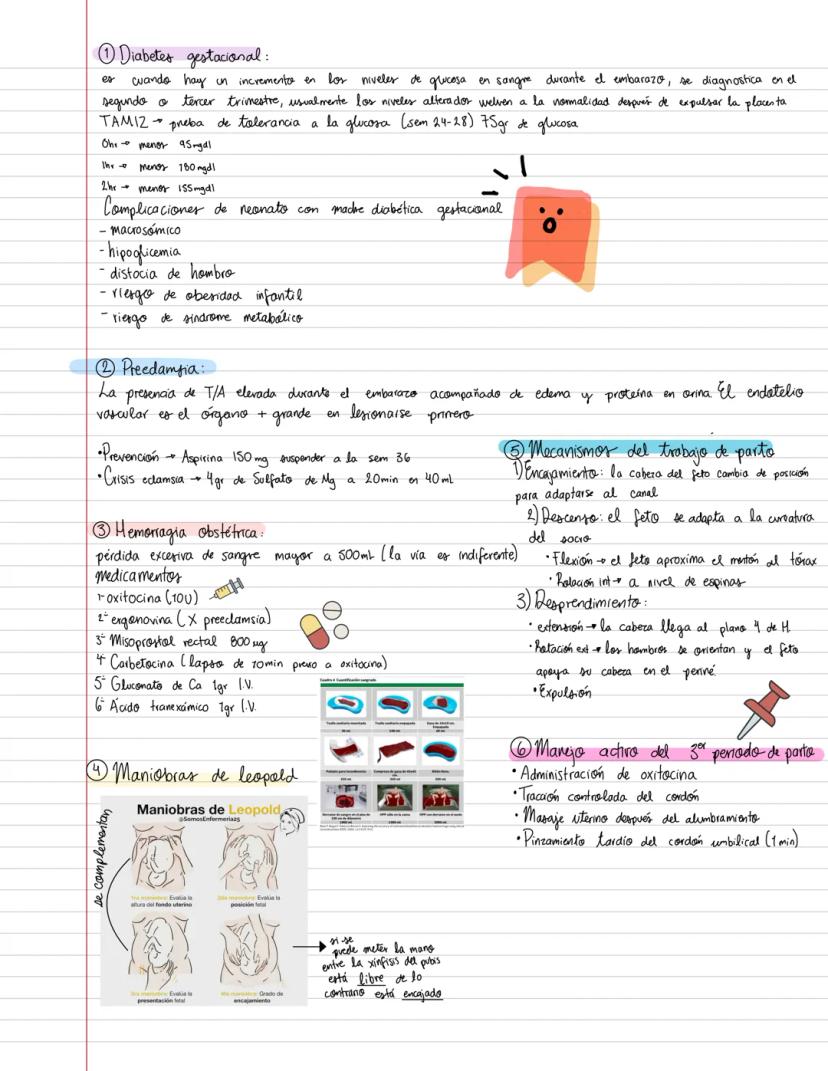 ① Diabetes gestacional:
es cuando hay un incremento en los niveles de glucosa en sangre durante el embarazo, se diagnostica en el
segundo o tercer trimestre, usualmente los niveles alterados vuelven a la normalidad después de expulsar la placenta
TAMIZ → prueba de tolerancia a la glucosa (sem 24-28) 75gr de glucosa
0hr → menor 95mgdl
1hr → menor 180mgdl
2hr → menor 155mgdl
Complicaciones de neonato con madre diabética gestacional
- macrosómico
- hipoglicemia
- distocia de hombro
- riesgo de obesidad infantil
- riesgo de síndrome metabólico
② Preeclampsia:
La presencia de T/A elevada durante el embarazo acompañado de edema y proteína en orina. El endotelio
vascular es el órgano + grande en lesionarse primero
•Prevención → Aspirina 150mg suspender a la sem 36
•Crisis eclamsia → 4gr de Sulfato de Mg a 20min en 40ml
③ Hemorragia obstétrica:
pérdida excesiva de sangre mayor a 500ml (la vía es indiferente)
Medicamentos
1- oxitocina (10U)
2- ergonovina (X preeclamsia)
3- Misoprostol rectal 800 µg
4- Carbetocina (lapso de 10min previo a oxitocina)
5- Gluconato de Ca 1gr I.V.
6- Ácido tranexámico 1gr I.V.
④ Maniobras de leopold
se complementan
Maniobras de Leopold
@SomosEnfermeria25
1ra maniobra: Evalúa la
altura del fondo uterino
2da maniobra: Evalúa la
posición fetal
3ra maniobra: Evalúa la
presentación fetal
4ta maniobra: Grado de
encajamiento
si se
puede meter la mano
entre la sínfisis del pubis
está libre de lo
contrario está encajado
⑤ Mecanismos del trabajo de parto
1) Encajamiento: la cabeza del feto cambia de posición
para adaptarse al canal
2) Descenso: el feto se adapta a la curvatura
del sacro
• Flexión → el feto aproxima el mentón al tórax
• Rotación int → a nivel de espinas
3) Desprendimiento:
• extensión → la cabeza llega al plano 4 de H.
• Rotación ext → los hombros se orientan y el feto
apoya su cabeza en el periné
• Expulsión
⑥ Manejo activo del 3er periodo de parto
• Administración de oxitocina
• Tracción controlada del cordón
• Masaje uterino después del alumbramiento
• Pinzamiento tardío del cordón umbilical (1min)